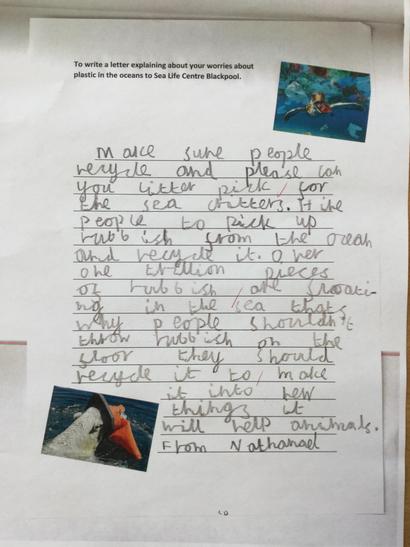 To write a letter explaining about your worries about
plastic in the oceans to Sea Life Centre Blackpool.
Make sure people
recycle and please can
you litter pick for
the sea critters. Hire
people to pick up
rubbish from the ocean
and recycle it. Over
one trillion pieces
of rubbish are floati
ng in the sea thats
why people shouldn't
throw rubbish on the
floor they should
recycle it to make
it into new
things it
will help animals.
From Nathanael